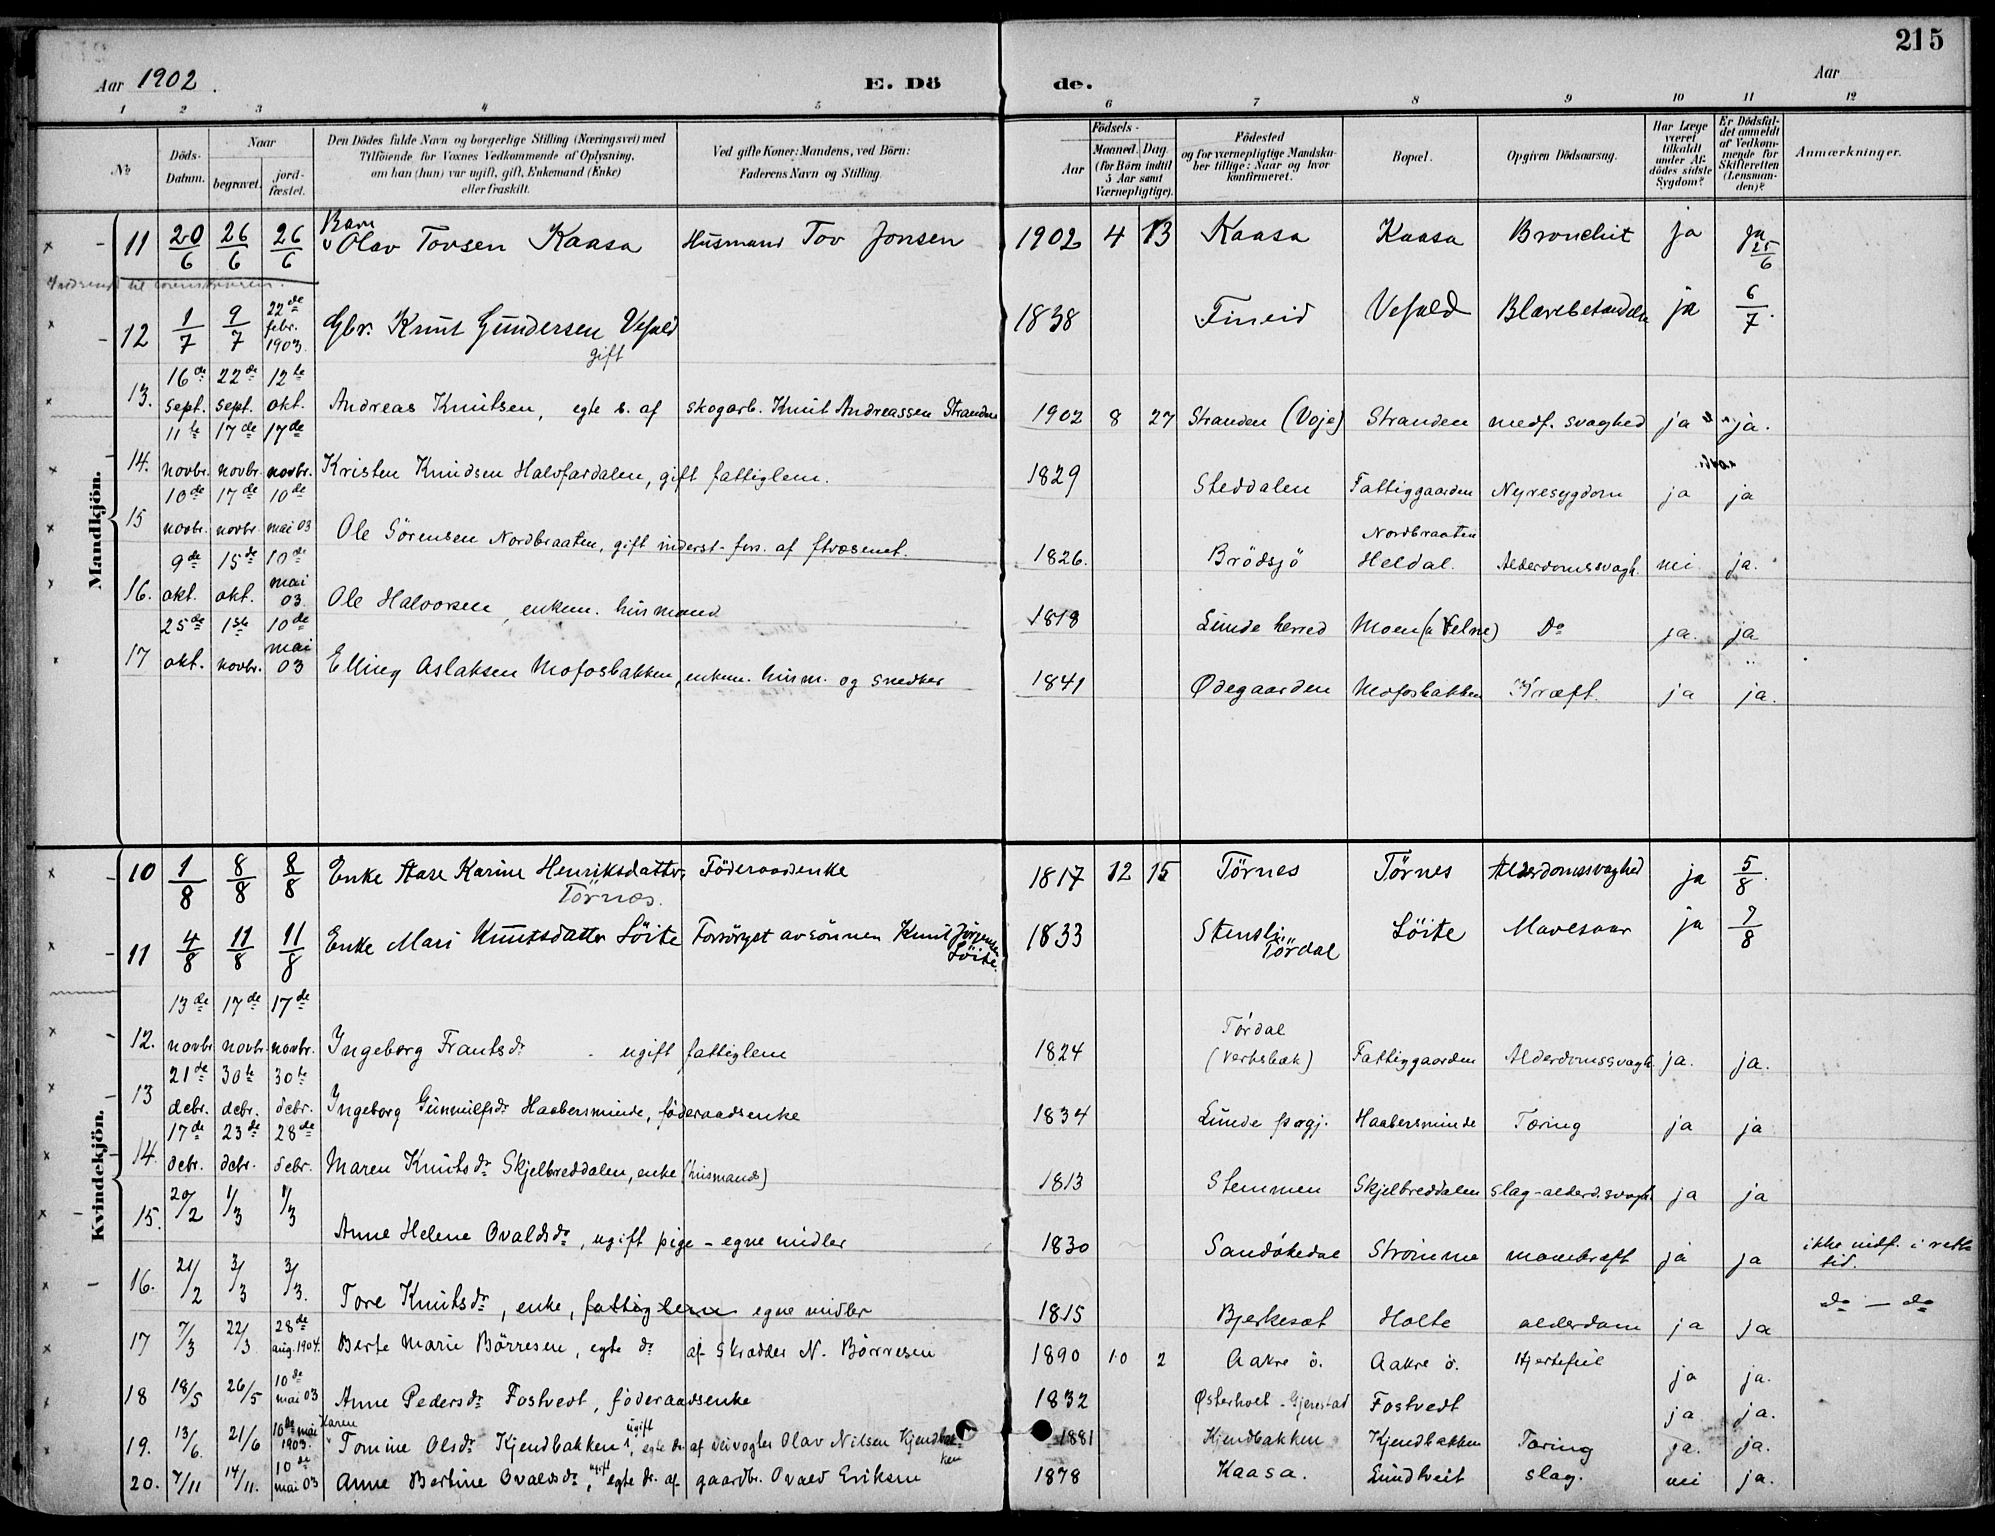 215
Aar 1902.
E. Dö de.
Aar
1 2 3 4 5 6 7 8 9 10 11 12
No
Döds-Datum.
Naar
begravet.
jord-fæstet.
Den Dödes fulde Navn og borgerlige Stilling (Næringsvei) med
Tilföiende for Voxnes Vedkommende af Oplysning,
om han (hun) var ugift, gift, Enkemand (Enke)
eller fraskilt.
Ved gifte Koner: Mandens, ved Börn:
Faderens Navn og Stilling.
Födsels-
Aar
Maaned. Dag.
(for Börn indtil
5 Aar samt
Værnepligtige).
Födested
og for værnepligtige Mandska-
ber tillige: Naar og hvor
konfirmeret.
Bopæl.
Opgiven Dödsaarsag.
Har Læge
været
tilkaldt
under Af-
dödes sidste
Sygdom?
Er Dödsfal-
det anmeldt
af Vedkom-
mende for
Skifteretten
(Lensman-
den)?
Anmærkninger.
Mandkjön.
11 20/6 26/6 26/6 Barn Olav Tovsen Kaasa Husmand Tov Jonsen 1902 4 13 Kaasa Kaasa Bronchit ja ja 25/6
12 1/7 9/7 22de febr. 1903 Gbr. Knut Gundersen Vefald gift 1838 Fineid Vefald ja 6/7.
13. 16de sept. 22de sept. 12te okt. Andreas Knutsen, egte s. af skogarb. Knut Andreassen Stranden 1902 8 27 Stranden (Voje) Stranden medf. svaghed ja ja.
14. 11te novbr. 17de novbr. 17de novbr. Kristen Knudsen Halvfardalen, gift fattiglem. 1829 Steddalen Fattiggaarden Nyresygdom ja ja
15 10de novbr. 17de novbr. 10de mai 03 Ole Sörensen Nordbraaten, gift inderst - fors. af ftvæsenet. 1826. Brödsjö Nordbraaten Heldal. Alderdomssvagh. nei ja.
16. 9de okt. 15de okt. 10de mai 03. Ole Halvorsen, enkem. husmand 1818 Lunde herred Moen (u Velne) Do ja. ja
17 25de okt. 1ste novbr. 10de mai 03 Elling Aslaksen Mofosbakken, enkem. husm. og snedker 1841 Ødegaarden Mofosbakken Kræft. ja ja.
Kvindekjön.
10 1/8 8/8 8/8 Enke Aase Karine Henriksdatter Törnes. Föderaadsenke 1817 12 15 Törnes Törnes Alderdomssvaghed ja 5/8.
11 4/8 11/8 11/8 Enke Mari Knutsdatter Löite Forsörget av sönnen Knut Jörgensen Löite. 1833 Stensli, Tördal Löite Mavesaar ja 7/8
12. 13de novbr. 17de novbr. 17de novbr. Ingeborg Frantsdr. ugift fattiglem 1824 Tördal (Verksbæk) Fattiggaarden Alderdomssvagh. ja. ja.
13 21de decbr. 30te decbr. 30te decbr. Ingeborg Gunnulfsdr. Haabersminde, föderaadsenke 1834 Lunde prgj. Haabersminde Tæring ja ja
14. 17de decbr. 23de decbr. 28de decbr. Maren Knutsdr. Skjelbreddalen, enke (husmands) 1813 Stemmen Skjelbreddalen slag-alderd.svagh. ja ja
15. 20/2 1/3 1/3 Anne Helene Ovaldsdr., ugift pige - egne midler 1830 Sandökedal Strömme mavekræft ja ja ikke indf. i rette tid.
16. 21/2 3/3 3/3. Tore Knutsdr., enke, fattiglem egne midler 1815 Bjerkesæt Holte alderdom ja ja do — do
17 7/3 22/3 28de aug. 1904. Berte Marie Börresen, egte dr. af skrædder N. Börresen 1890 10 2 Aakre ö. Aakre ö. Hjertefeil ja ja.
18 18/5 26/5 10de mai 03 Anne Pedersdr. Fostvedt, föderaadsenke 1832 Østerholt - Gjerestad Fostvedt ja ja.
19. 13/6. 21/6 10de mai 1903. Karen Tomine Olsdr. Kjendbakken, ugift, egte dr. af veivogter Olav Nilsen Kjendbakken 1881 Kjendbakken Kjendbakken Tæring ja. ja.
20. 7/11 14/11. 10de mai 03 Anne Bertine Ovaldsdr., ugift egte dr. af gaardbr. Ovald Eriksen 1878 Kaasa. Lundtveit slag. nei ja.